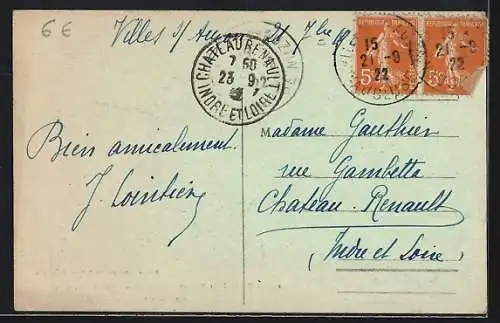 6 €
Villes s/ 21 7bre
CHATEAURENAULT
7 50
23 9 22
INDRE ET LOIRE
REPUBLIQUE FRANÇAISE
15
21-9
22
5c
21-9
22
5c
Madame Gauthier
rue Gambetta
Chateau-Renault
Indre et Loire
Bien amicalement
J.